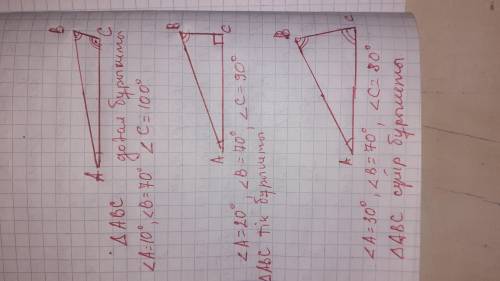 B
C
A
ΔABC доғал бұрышты
∠A=10°, ∠B=70° ∠C=100°
B
C
A
∠A=20°, ∠B=70°, ∠C=90°
ΔABC тік бұрышты
B
C
A
∠A=30°, ∠B=70°, ∠C=80°
ΔABC сүйір бұрышты